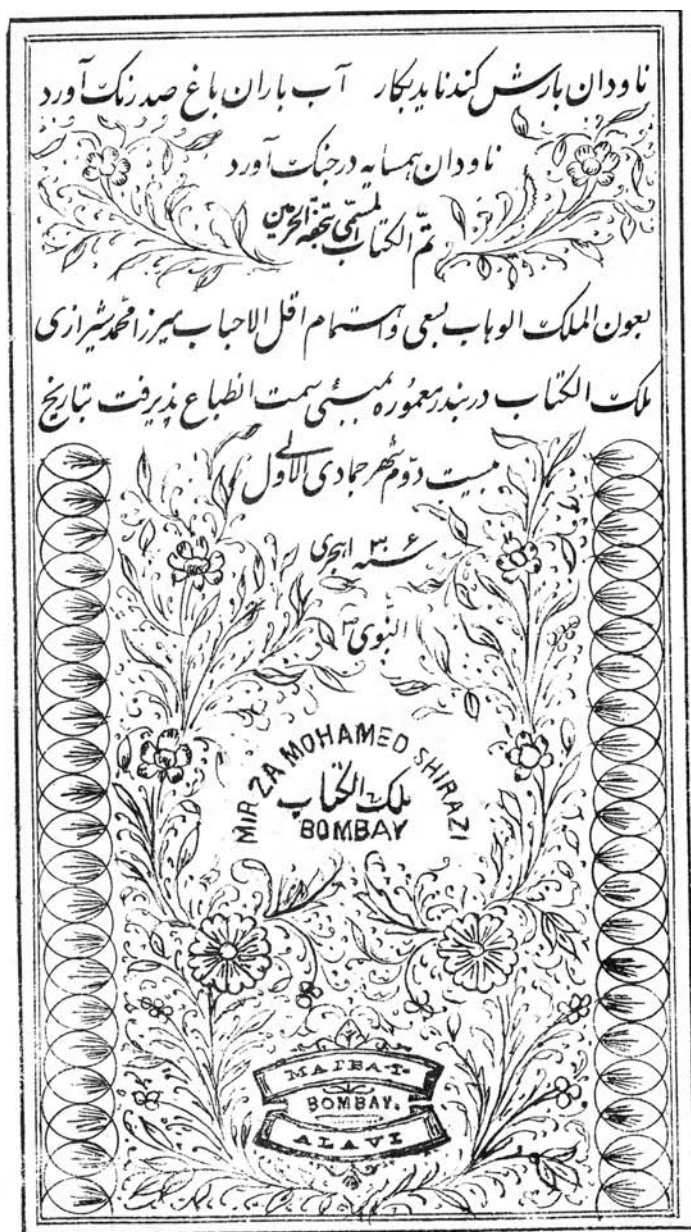 ناودان بارش کند ناید بکار آب باران باغ صد رنک آورد
ناودان همسایه در جنک آورد
تمّ الکتاب المسمّی بتحفة الحرمین
بعون الملک الوهاب بسعی و اهتمام اقل الاحباب میرزا محمد شیرازی
ملک الکتاب در بندر معموره بمبئی سمت انطباع پذیرفت بتاریخ
بیست دوّم شهر جمادی الاول
سنه ۱۳۰۶ هجری
النبوی ص
MIRZA MOHAMED SHIRAZI
ملک الکتاب
BOMBAY
BOMBAY.
ALAVI